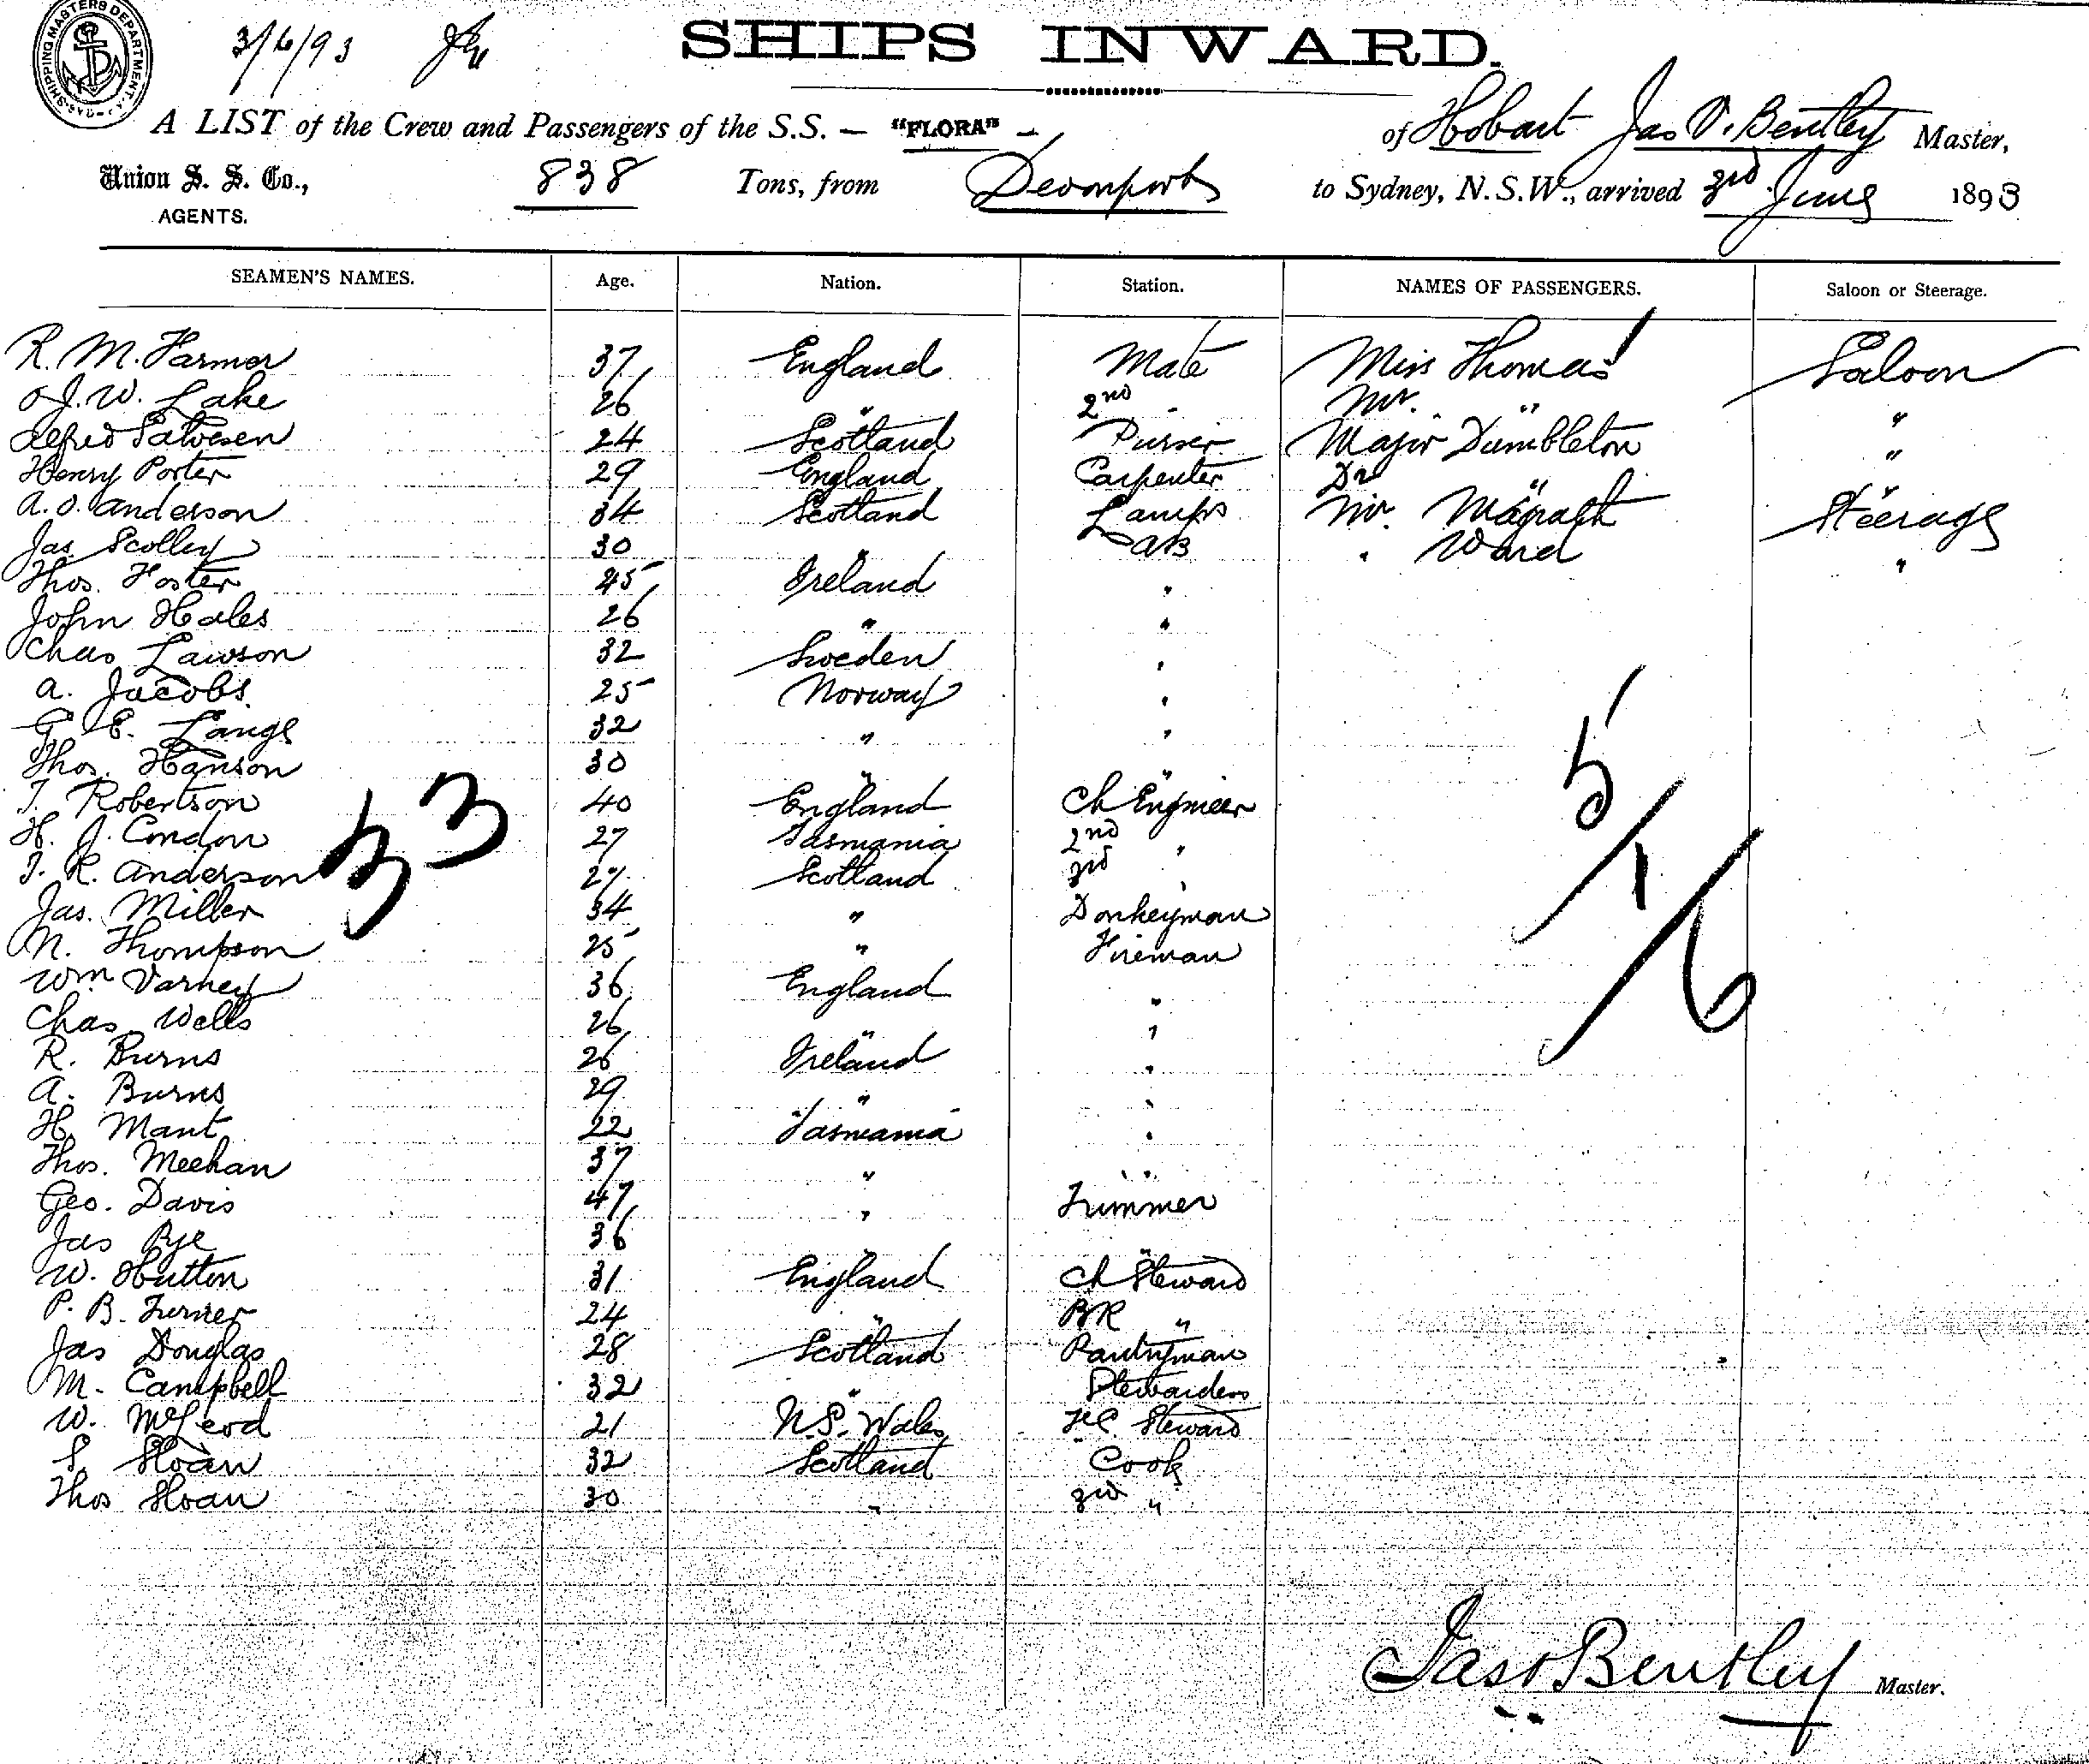 SHIPPING MASTERS DEPARTMENT
3/6/93
SHIPS INWARD.
A LIST of the Crew and Passengers of the S.S. — "FLORA" — of Hobart Jas V. Bentley Master,
Union S. S. Co., AGENTS. 838 Tons, from Devonport to Sydney, N.S.W., arrived 3rd June 1893
SEAMEN'S NAMES. Age. Nation. Station. NAMES OF PASSENGERS. Saloon or Steerage.
R. M. Farmer 37 England Mate Miss Thomas Saloon
J. W. Lake 26 " 2nd " Mr. " "
Alfred Salvesen 24 Scotland Purser Major Dumbleton "
Henry Porter 29 England Carpenter Dr " "
A. O. Anderson 34 Scotland Lamps Mr. Magrath Steerage
Jas. Scolley 30 " AB " Ward "
Thos. Foster 45 Ireland "
John Hales 26 " "
Chas Lawson 32 Sweden "
A. Jacobs 25 Norway "
G. E. Lange 32 " "
Thos. Hanson 30 " "
T. Robertson 40 England Ch Engineer
H. J. Condon 27 Tasmania 2nd "
T. R. Anderson 27 Scotland 3rd "
Jas. Miller 34 " Donkeyman
N. Thompson 25 " Fireman
Wm Varney 36 England "
Chas Wells 26 " "
R. Burns 26 Ireland "
A. Burns 29 " "
H Mant 22 Tasmania "
Thos. Meehan 37 " "
Geo. Davis 47 " Trimmer
Jas Pye 36 " "
W. Hutton 31 England Ch Steward
P. B. Turner 24 " BR "
Jas Douglas 28 Scotland Pantryman
M. Campbell 32 " Stewardess
W. McLeod 21 N.S. Wales F.C. Steward
S. Sloan 32 Scotland Cook
Thos Sloan 30 " 3rd "
33
5/1/6
Jas V Bentley Master.